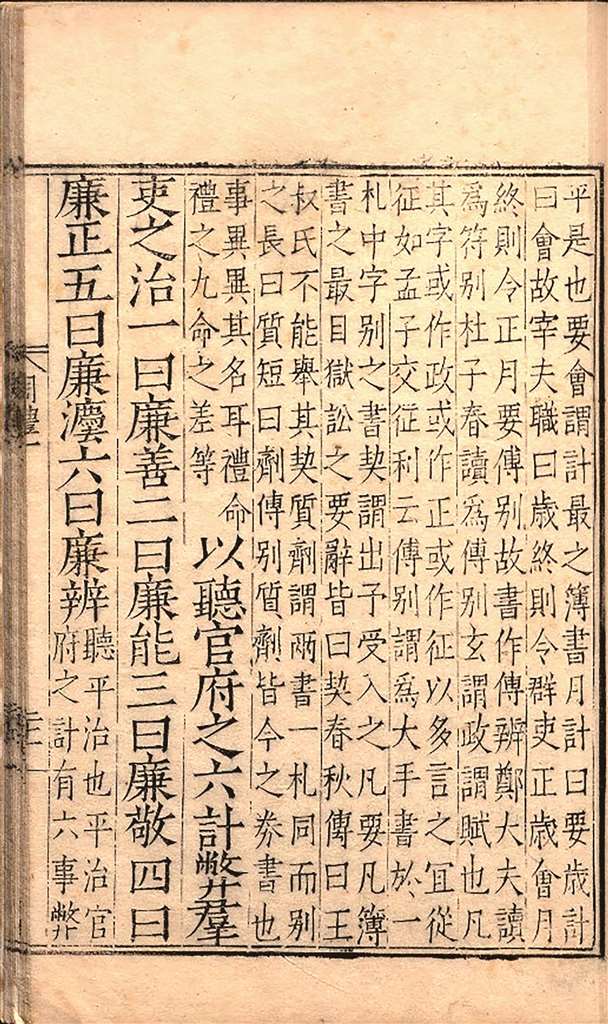 平是也要會謂計最之簿書月計曰要歲計
曰會故宰夫職曰歲終則令群吏正歲會月
終則令正月要傅別故書作傅辨鄭大夫讀
爲符別杜子春讀爲傅別玄謂政謂賦也凡
其字或作政或作正或作征以多言之宜從
征如孟子交征利云傅別謂爲大手書於一
札中字別之書契謂出予受入之凡要凡簿
書之最目獄訟之要辭皆曰契春秋傳曰王
叔氏不能舉其契質劑謂兩書一札同而別
之長曰質短曰劑傅別質劑皆今之券書也
事異異其名耳禮命
禮之九命之差等
以聽官府之六計弊羣
吏之治一曰廉善二曰廉能三曰廉敬四曰
廉正五曰廉灋六曰廉辨
聽平治也平治官
府之計有六事弊